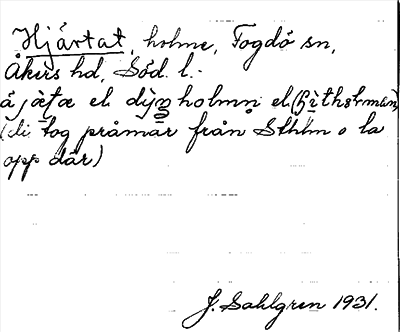 Hjärtat, holme, Fogdö sn,
Åkers hd, Söd. l.
å jæ̀ta el dỳŋholmn el (hìtholmän)
(di tog pråmar från Sthlm o la
opp där)
J. Sahlgren 1931.